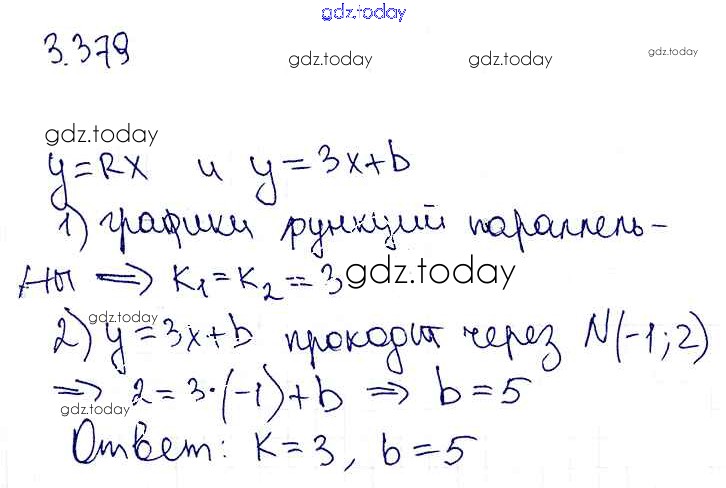 gdz.today
3.379
gdz.today gdz.today gdz.today
gdz.today
y=kx и y=3x+b
1) графики функций параллель-
ны ⟹ k₁=k₂=3 gdz.today
gdz.today
2) y=3x+b проходит через N(-1;2)
⟹ 2=3·(-1)+b ⟹ b=5
gdz.today
Ответ: k=3, b=5